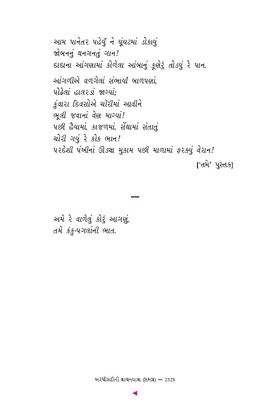 આમ પાનેતર પહેર્યું ને ઘૂંઘટમાં ડોકાયું
જોબનનું થનગનતું ગાન!
દાદાના આંગણામાં કોળેલા આંબાનું કૂણેરું તોડ્યું રે પાન.
આંગળીએ વળગેલાં સંભાર્યાં બાળપણાં,
પોઢેલાં હાલરડાં જાગ્યાં;
કુંવારા દિવસોએ ચોરીમાં આવીને
ભૂલી જવાનાં વેણ માગ્યાં!
પછી હૈયામાં, કાજળમાં, સેંથામાં સંતાતું
ચોરી ગયું રે કોક ભાન!
પરદેશી પંખીનાં ઊડ્યા મુકામ પછી માળામાં ફરક્યું વેરાન!
['તમે' પુસ્તક]
અમે રે વાળેલું કોરું આંગણું,
તમે કંકુ-પગલાંની ભાત.
અરધીસદીની વાચનયાત્રા (સમગ્ર) — 2325